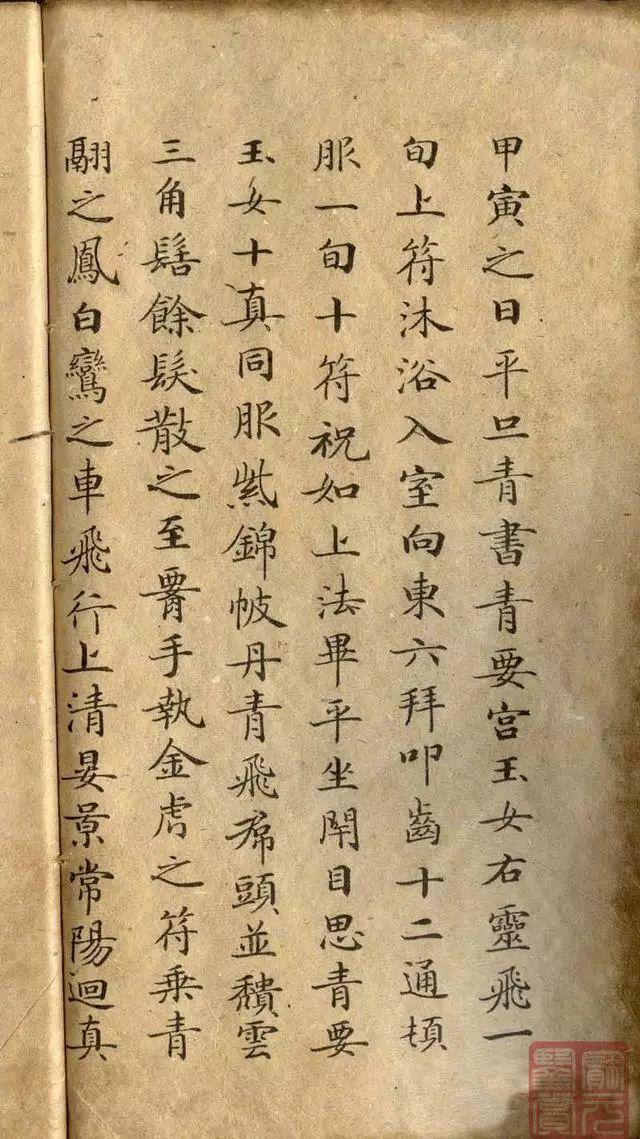 甲寅之日平旦青書青要宮玉女右靈飛一
旬上符沐浴入室向東六拜叩齒十二通頓
服一旬十符祝如上法畢平坐閉目思青要
玉女十真同服紫錦帔丹青飛帬頭並穨雲
三角髻餘髮散之至𦝫手執金虎之符乘青
翮之鳳白鸞之車飛行上清晏景常陽迴真